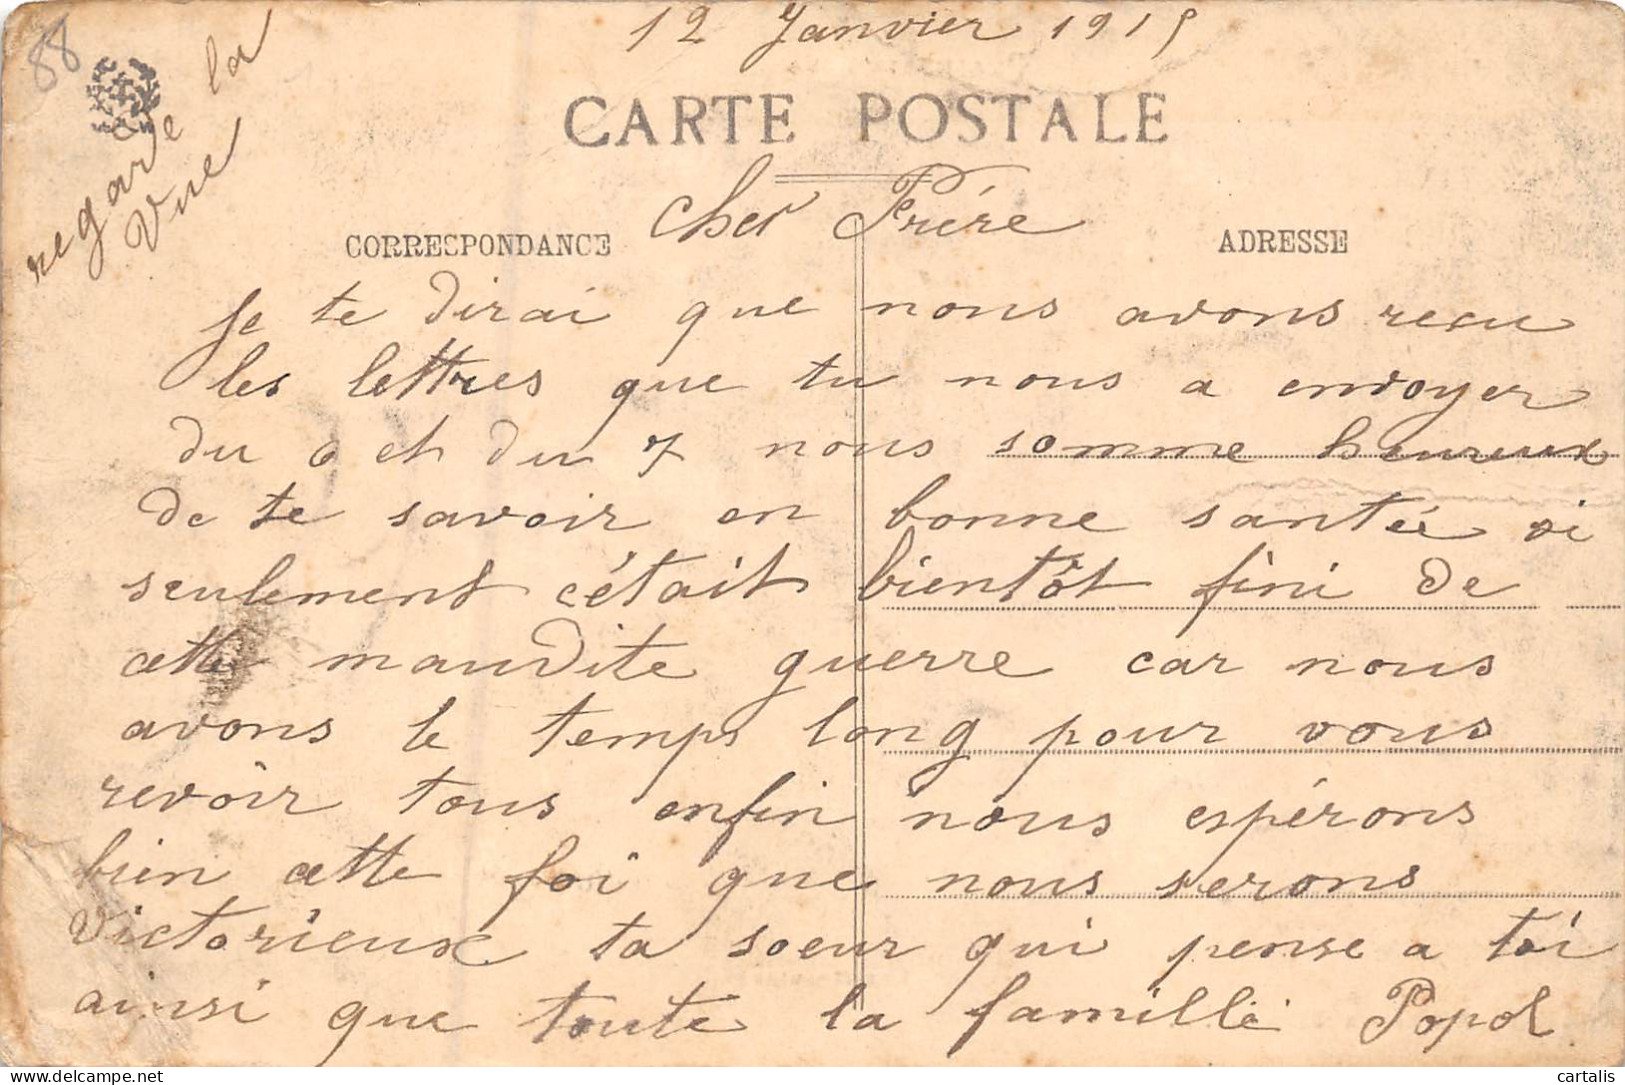 12 Janvier 1915
88
regarde la
Vue
CARTE POSTALE
CORRESPONDANCE
cher Frére
ADRESSE
Je te dirai que nous avons recu
les lettres que tu nous a envoyer
du 6 et du 7 nous somme heureux
de te savoir en bonne santée si
seulement c'était bientôt fini de
cette maudite guerre car nous
avons le temps long pour vous
revoir tous enfin nous espérons
bien cette foi que nous serons
victorieux ta soeur qui pense a toi
ainsi que toute la famille Popol
cartalis